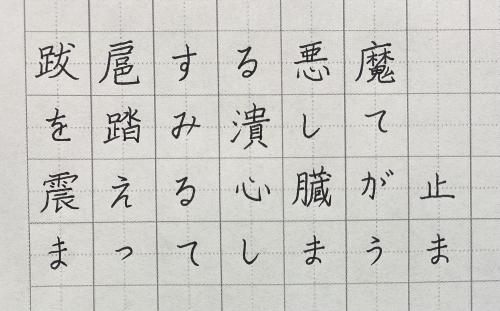 跋扈する悪魔
を踏み潰して
震える心臓が止
まってしまうま